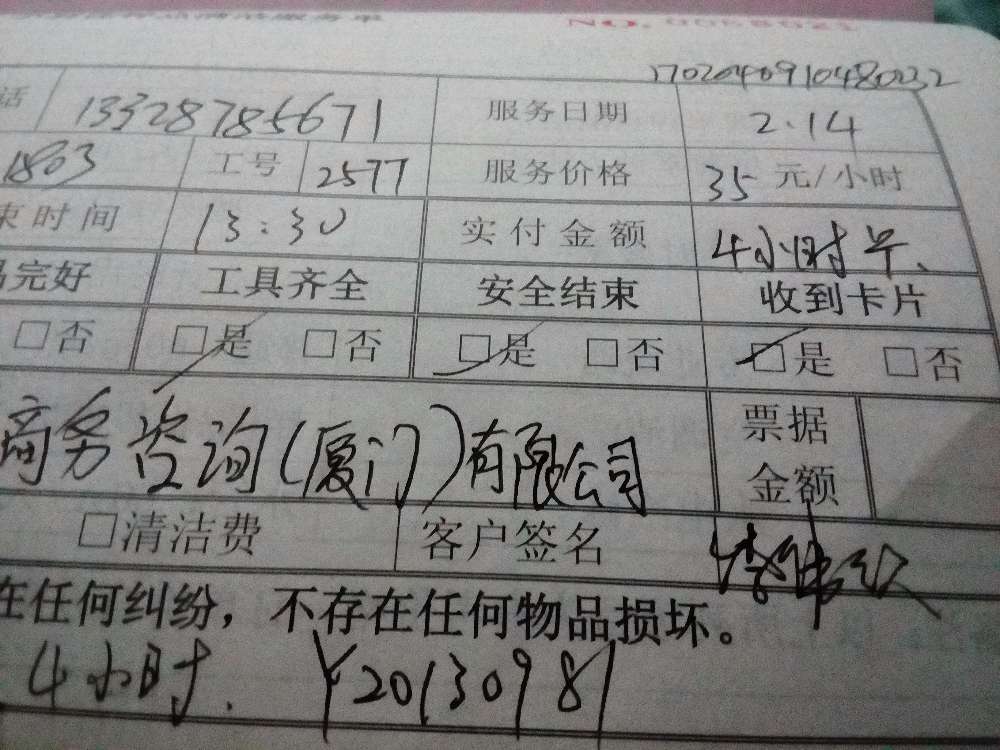 服务单
NO. 0068021
1702040910480232
话 13328785671 服务日期 2.14
1803 工号 2577 服务价格 35 元/小时
束时间 13:30 实付金额 4小时卡、
品完好 工具齐全 安全结束 收到卡片
□否 □是 □否 □是 □否 □是 □否
商务咨询(厦门)有限公司 票据金额
□清洁费 客户签名
在任何纠纷，不存在任何物品损坏。
4小时. Y20130981